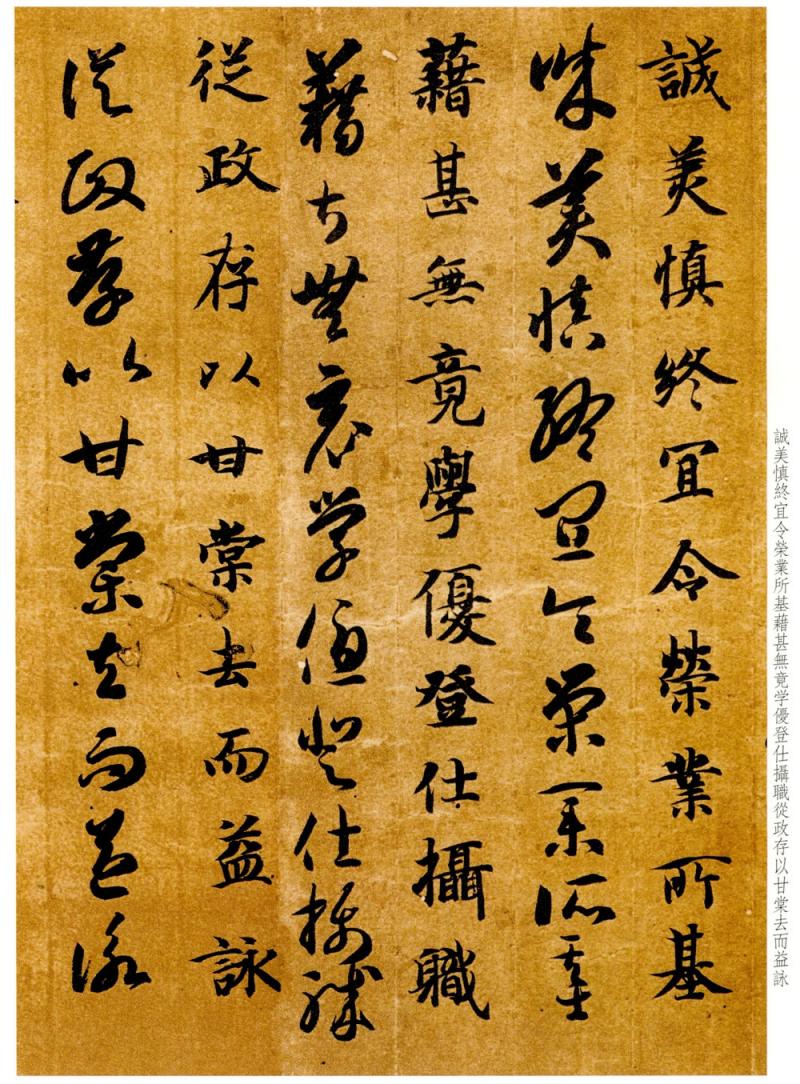 誠美慎終宜令榮業所基
誠美慎終宜令榮業所基
藉甚無竟學優登仕攝職
藉甚無竟学優登仕攝職
從政存以甘棠去而益詠
從政存以甘棠去而益詠
誠美慎終宜令榮業所基藉甚無竟学優登仕攝職從政存以甘棠去而益詠